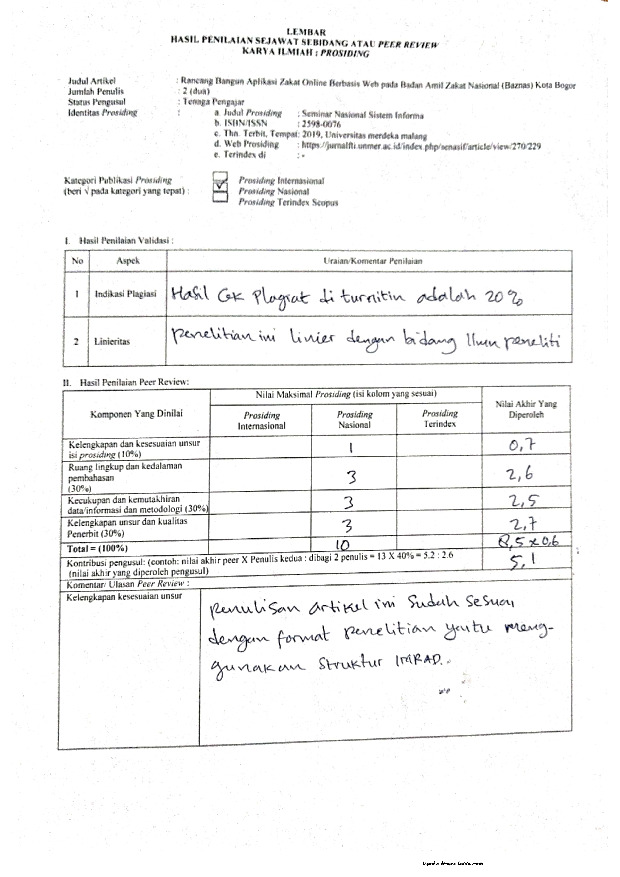 LEMBAR
HASIL PENILAIAN SEJAWAT SEBIDANG ATAU PEER REVIEW
KARYA ILMIAH : PROSIDING
Judul Artikel : Rancang Bangun Aplikasi Zakat Online Berbasis Web pada Badan Amil Zakat Nasional (Baznas) Kota Bogor
Jumlah Penulis : 2 (dua)
Status Pengusul : Tenaga Pengajar
Identitas Prosiding : a. Judul Prosiding : Seminar Nasional Sistem Informa
b. ISBN/ISSN : 2598-0076
c. Thn. Terbit, Tempat: 2019, Universitas merdeka malang
d. Web Prosiding : https://jurnalfti.unmer.ac.id/index.php/senasif/article/view/270/229
e. Terindex di : -
Kategori Publikasi Prosiding Prosiding Internasional
(beri √ pada kategori yang tepat) : √ Prosiding Nasional
Prosiding Terindex Scopus
I. Hasil Penilaian Validasi :
No Aspek Uraian/Komentar Penilaian
1 Indikasi Plagiasi Hasil Cek Plagiat di turnitin adalah 20%
2 Linieritas Penelitian ini linier dengan bidang Ilmu peneliti
II. Hasil Penilaian Peer Review:
Komponen Yang Dinilai Nilai Maksimal Prosiding (isi kolom yang sesuai) Nilai Akhir Yang Diperoleh
Prosiding Internasional Prosiding Nasional Prosiding Terindex
Kelengkapan dan kesesuaian unsur
isi prosiding (10%) 1 0,7
Ruang lingkup dan kedalaman
pembahasan 3 2,6
(30%)
Kecukupan dan kemutakhiran
data/informasi dan metodologi (30%) 3 2,5
Kelengkapan unsur dan kualitas
Penerbit (30%) 3 2,7
Total = (100%) 10 8,5 x 0,6
Kontribusi pengusul: (contoh: nilai akhir peer X Penulis kedua : dibagi 2 penulis = 13 X 40% = 5.2 : 2.6 5,1
(nilai akhir yang diperoleh pengusul)
Komentar/ Ulasan Peer Review :
Kelengkapan kesesuaian unsur Penulisan artikel ini sudah sesuai
dengan format penelitian yaitu meng-
gunakan struktur IMRAD.